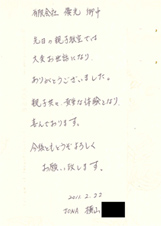 有限会社 榮光 御中
先日の親子教室では
大変お世話になり
ありがとうございました。
親子共々 貴重な体験となり
喜んでおります。
今後ともどうぞよろしく
お願い致します。
2011.2.22
横山